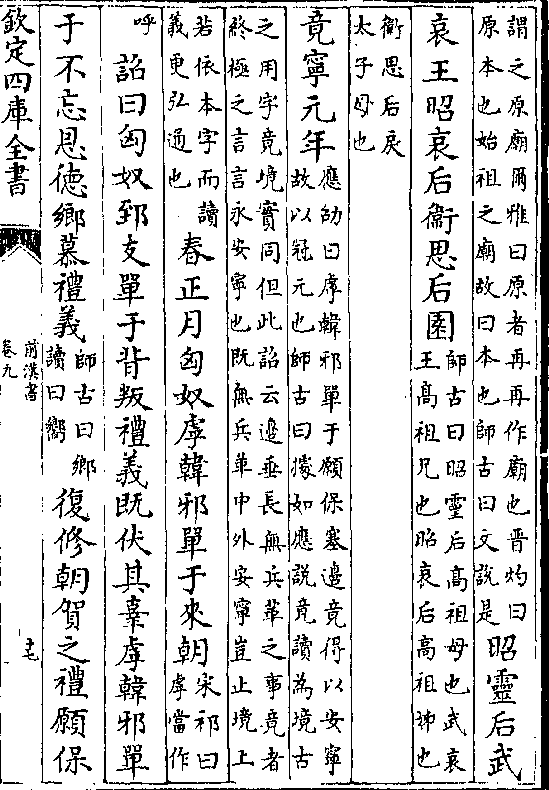 謂之原廟爾雅曰原者再再作廟也晉灼曰
原本也始祖之廟故曰本也師古曰文說是
昭靈后武
哀王昭哀后衞思后園
師古曰昭靈后高祖母也武哀
王高祖兄也昭哀后高祖姊也
衞思后戾
太子母也
竟寧元年
應劭曰虖韓邪單于願保塞邊竟得以安寧
故以冠元也師古曰據如應說竟讀為境古
之用字竟境實同但此詔云邊垂長無兵革之事竟者
終極之言言永安寧也既無兵革中外安寧豈止境上
若依本字而讀
義更弘通也
春正月匈奴虖韓邪單于來朝
宋祁曰
虖當作
呼
詔曰匈奴郅支單于背叛禮義既伏其辜虖韓邪單
于不忘恩德鄉慕禮義
師古曰鄉
讀曰嚮
復修朝賀之禮願保
欽定四庫全書
前漢書
卷九
十七